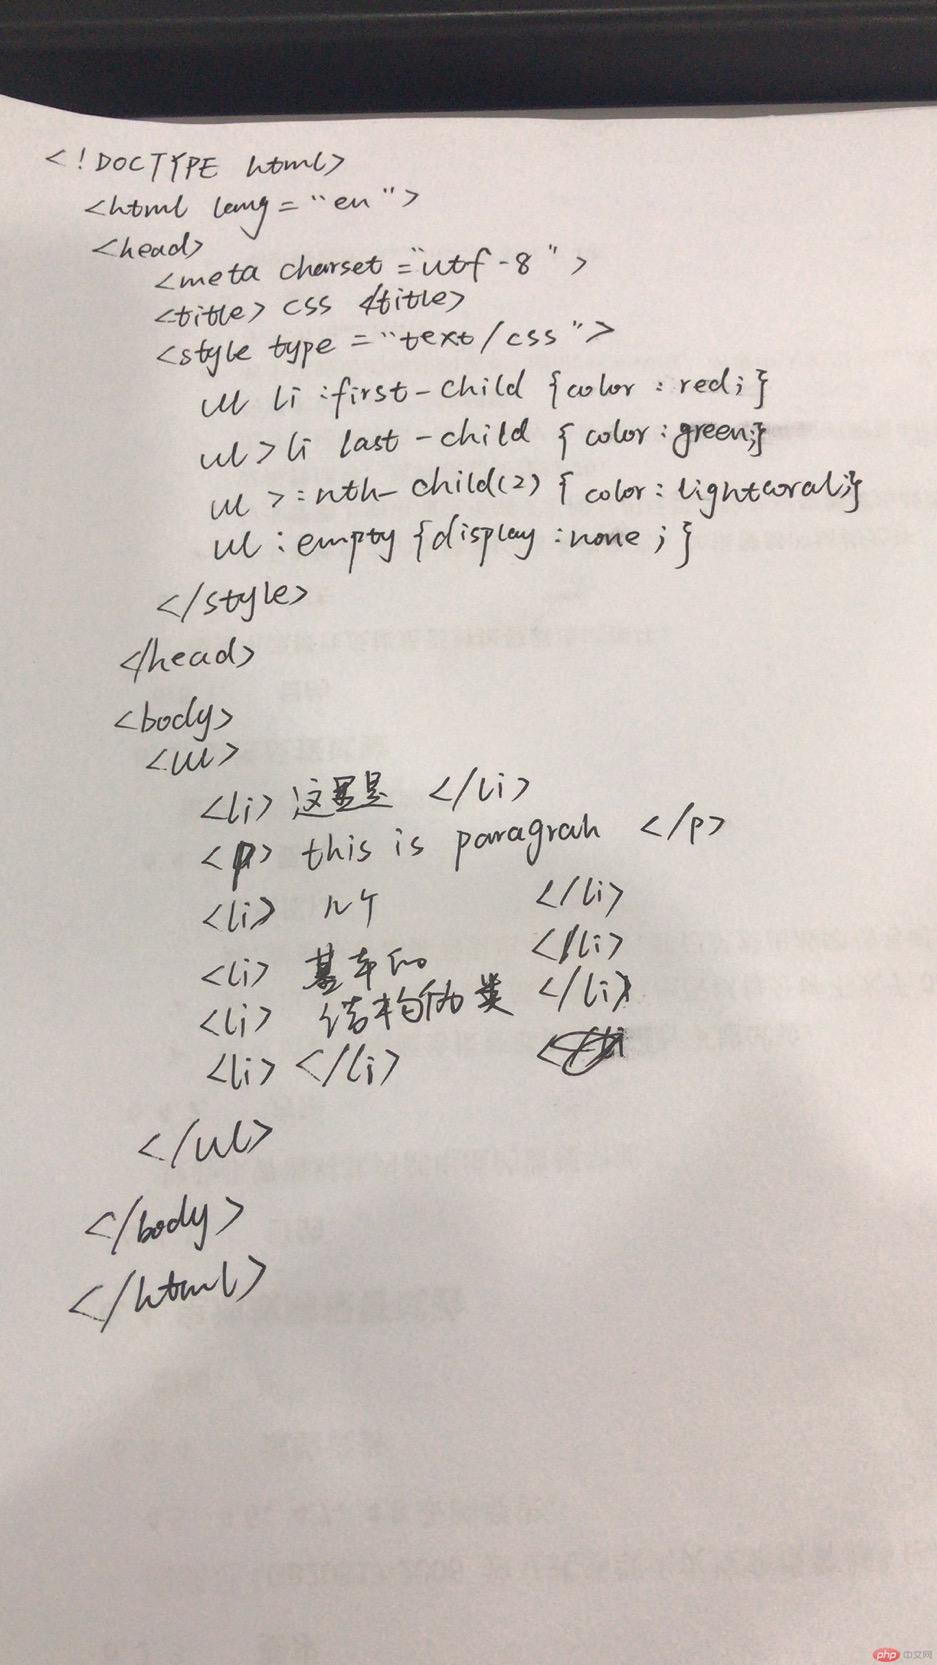 <!DOCTYPE html>
<html lang="en">
<head>
<meta charset="utf-8">
<title> css </title>
<style type="text/css">
ul li:first-child {color:red;}
ul>li last-child {color:green;}
ul >:nth-child(2) {color:lightcoral;}
ul:empty {display:none;}
</style>
</head>
<body>
<ul>
<li> 这里是 </li>
<p> this is paragrah </p>
<li> 几个 </li>
<li> 基本的 </li>
<li> 结构伪类 </li>
<li> </li>
</ul>
</body>
</html>
php 中文网